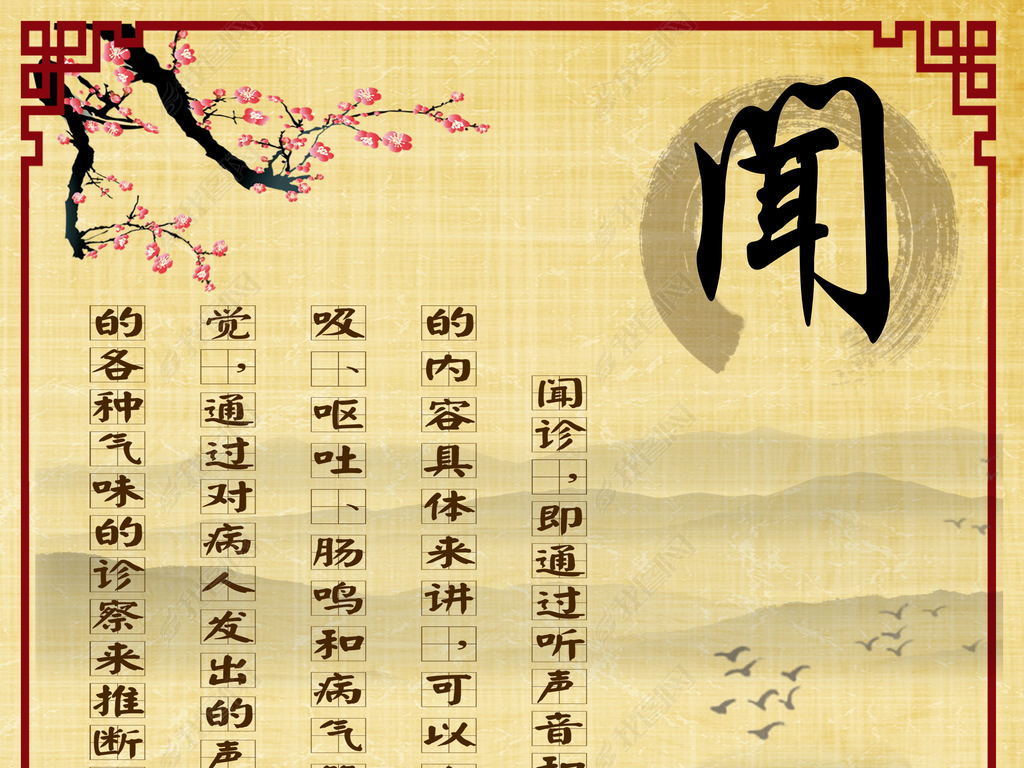 闻
闻诊，即通过听声音
的内容具体来讲，可以
吸、呕吐、肠鸣和病气
觉，通过对病人发出的声
的各种气味的诊察来推断